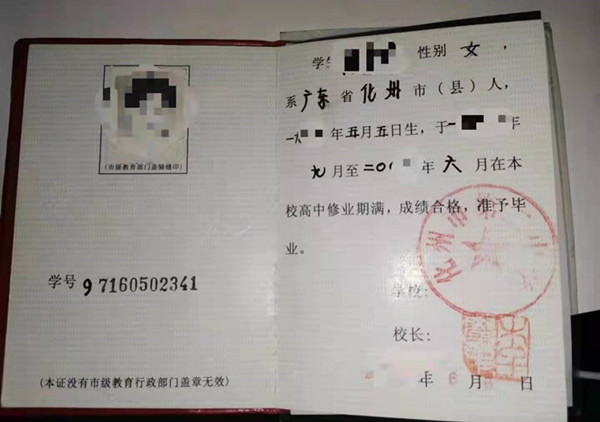 (市级教育部门盖骑缝印)
学号 97160502341
(本证没有市级教育行政部门盖章无效)
性别 女，
系 广东 省 化州 市（县）人，
一九 年 五 月 五 日生，于 一 年
九 月至 二〇 年 六 月在本
校高中修业期满，成绩合格，准予毕
业。
化州市第
学校：
校长：
年 6 月 日